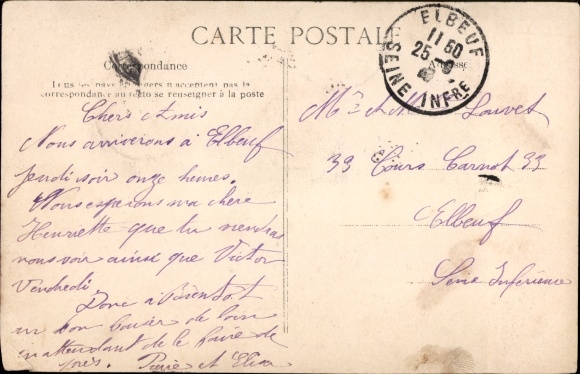 CARTE POSTALE
Correspondance
Adresse
Tous les pays étrangers n'acceptent pas la
correspondance au recto se renseigner à la poste
ELBEUF
11 50
25
SEINE INFRE
Chers Amis
Nous arriverons à Elbeuf
jeudi soir onze heures.
Nous esperons ma chere
Henriette que tu viendras
nous voir ainsi que Victor
Vendredi.
Donc à bientot
un bon baiser de loin
en attendant de le faire de
près. et Elisa
Louvet
33 Cours Carnot 33
Elbeuf
Seine Inferieure